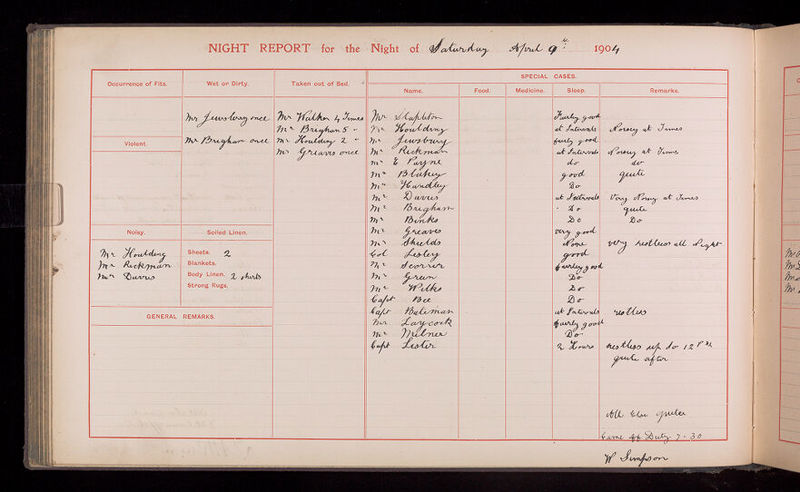 NIGHT REPORT for the Night of Saturday April 9th 1904
Occurrence of Fits.
Wet or Dirty.
Taken out of Bed.
SPECIAL CASES.
Name.
Food.
Medicine.
Sleep.
Remarks.
Mr Jewsbury once
Mr Brigham once
Mr Walker 4 Times
Mr Brigham 5 "
Mr Houlding 2 "
Mr Greaves once
Violent.
Noisy.
Mr Houlding
Mr Rickman
Mr Davies
Soiled Linen.
Sheets. 2
Blankets.
Body Linen. 2 shirts
Strong Rugs.
GENERAL REMARKS.
Mr Stapleton Fairly good
Mr Houlding at Intervals Noisey at Times
Mr Jewsbury fairly good
Mr Rickman at Intervals Noisey at Times
Mr E Payne do do
Mr Blakey good quite
Mr Handley Do
Mr Davies at Intervals Very Noisey at Times
Mr Brigham " Do quite
Mr Binks Do Do
Mr Greaves very good
Mr Shields None very restless all Night
Col Lesley good
Mr Scorrer fairley good
Mr Green Do
Mr Wilks Do
Capt Bee Do
Capt Bateman at Intervals restless
Mr Laycock fairly good
Mr Milner Do
Capt Lister 2 Hours restless up to 12 P M
quite after
All Else quite
Came off Duty 7-30
W Simpson